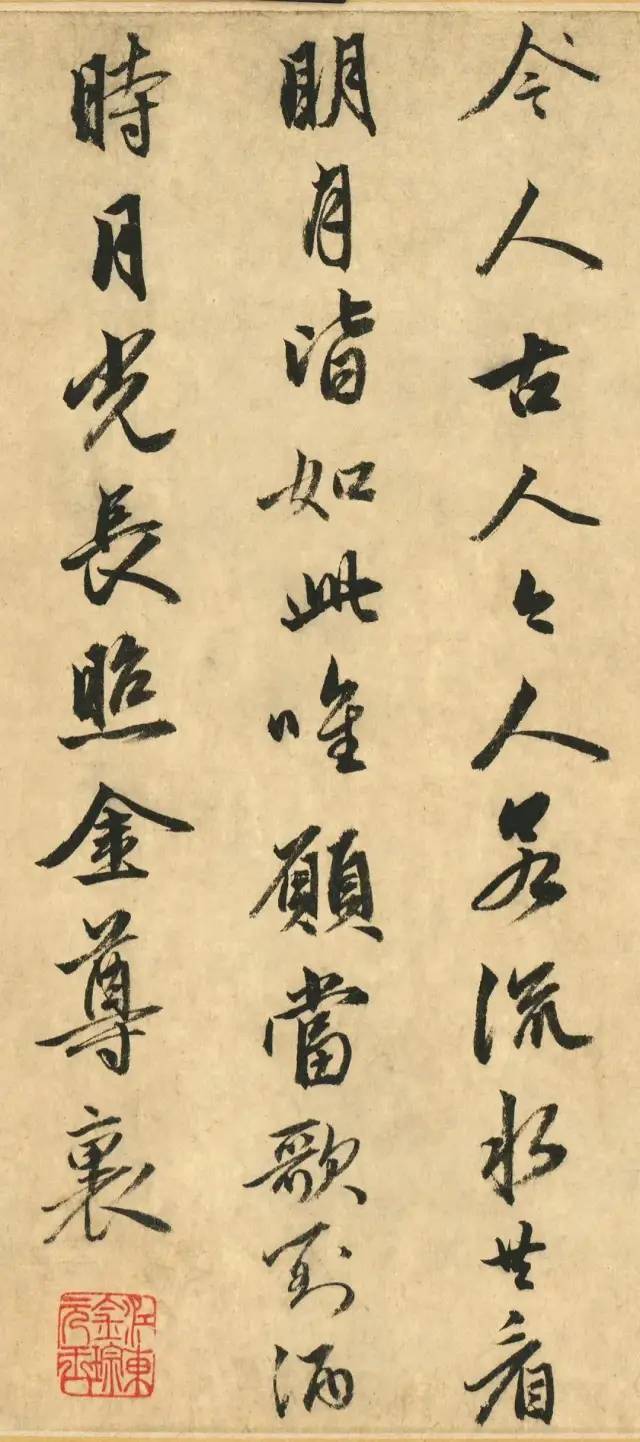 今人古人今人若流水共看
明月皆如此唯願當歌對酒
時月光長照金尊裏
江東金琮元玉